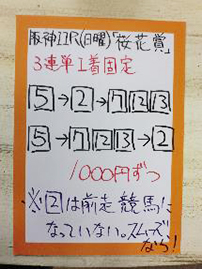 阪神11R(日曜)「桜花賞」
3連単1着固定
5→2→7 12 13
5→7 12 13→2
1000円ずつ
※2は前走競馬に
なっていない。スムーズ
なら!